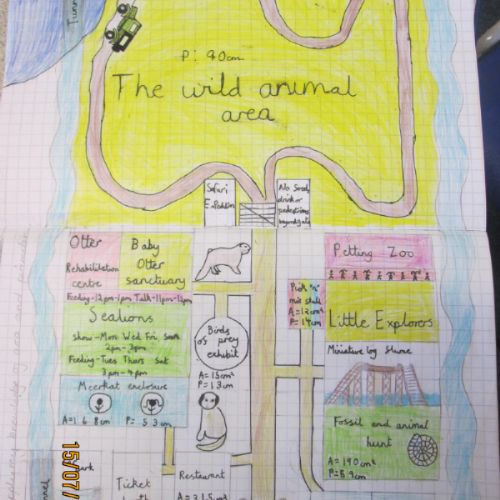 Tunn
P: 90cm
The wild animal
area
Safari
Expedition
No food,
drink or
pedestrians
beyond gate
Otter
Rehabilitation
centre
Baby
Otter
sanctuary
Feeding-12pm-1pm Talk-11pm-12pm
Sealions
Show-Mon Wed Fri Sun
2pm-3pm
Feeding-Tues Thurs Sat
3pm-4pm
Meerkat enclosure
A=168cm P=53cm
Birds
of prey
exhibit
A=15cm²
P=13cm
Petting Zoo
Pick "n"
mix stall
A=12cm²
P=14cm
Little Explorers
Miniature log flume
Fossil and animal
hunt
A=190cm²
P=59cm
nnel
ark
Ticket
Restaurant
A=315cm²
15/07/